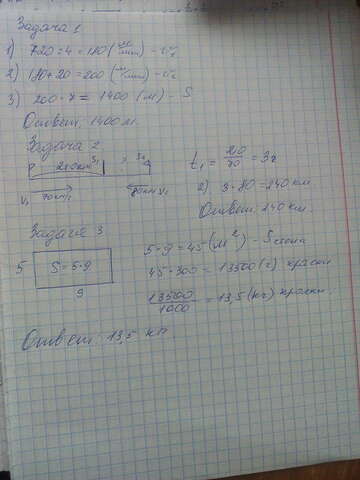 Задача 1
1) 720 : 4 = 180 (м/мин) -
2) 180 + 20 = 200 (м/мин) -
3) 200 · 7 = 1400 (м) - S
Ответ: 1400 м.
Задача 2
210 км S₁ ? S₂
V₁ 70 км/ч 80 км V₂
t₁ = 210/70 = 3ч
2) 3 · 80 = 240 км
Ответ: 240 км.
Задача 3
5 S = 5·9
9
5·9 = 45 (м²) - S
45 · 300 = 13500 (г) краски
13500/1000 = 13,5 (кг) краски
Ответ: 13,5 кг